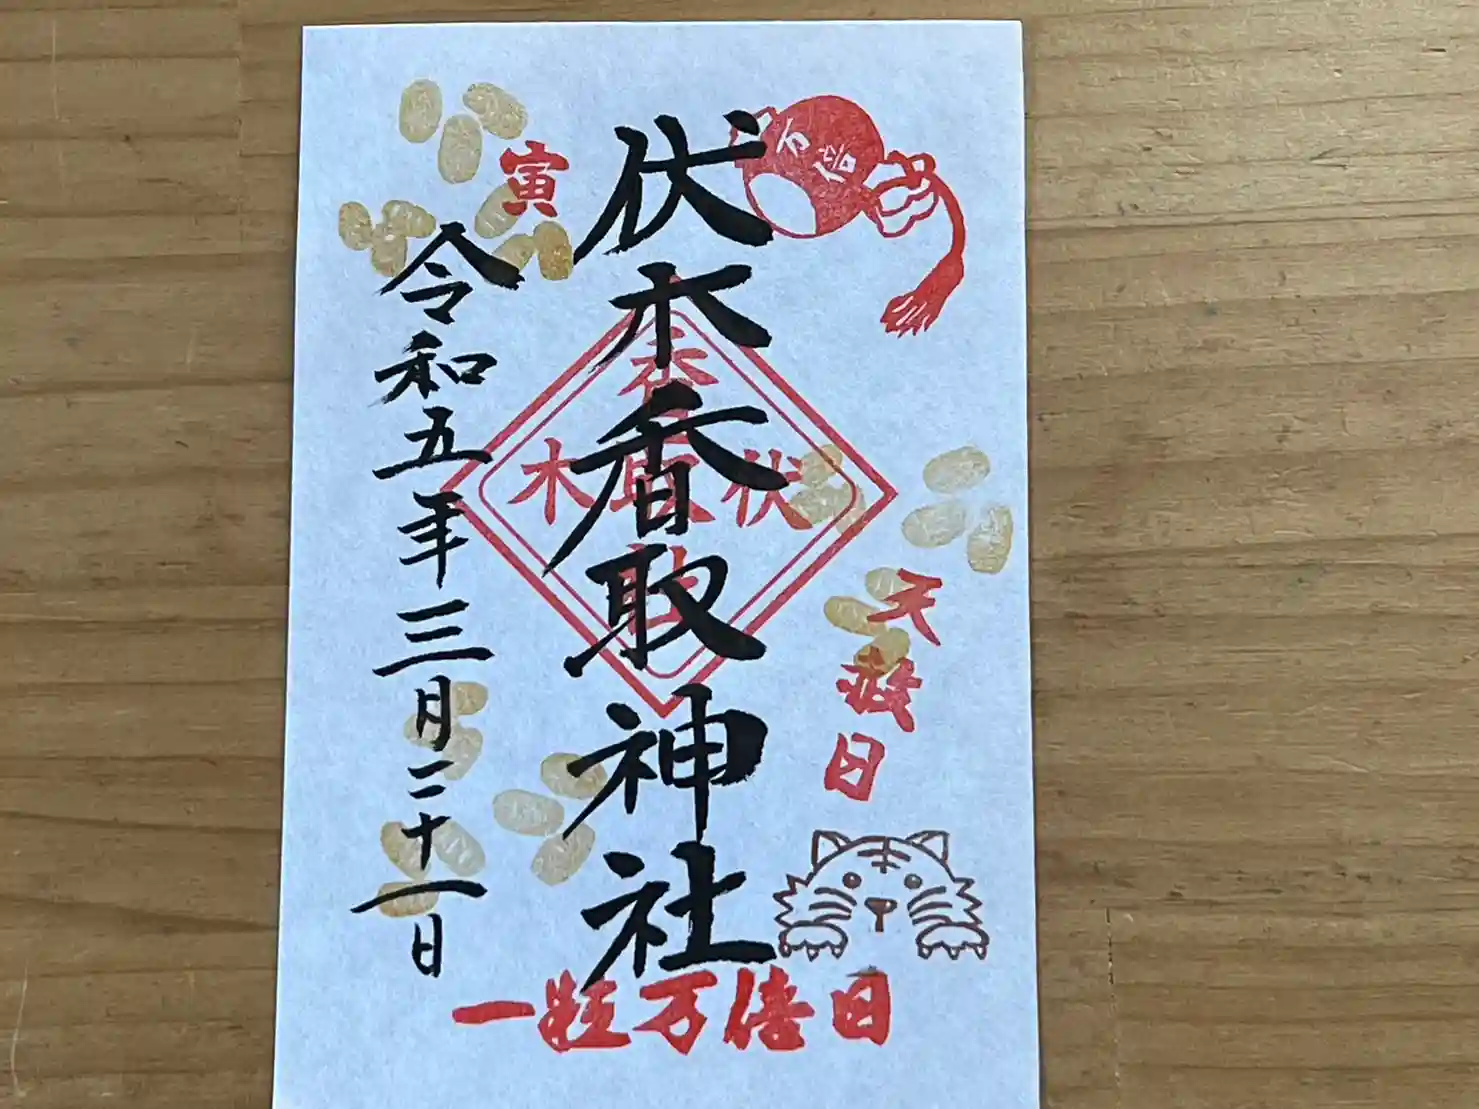 万倍
伏木香取神社
伏木
香取
社
天赦日
寅
令和五年三月二十一日
一粒万倍日